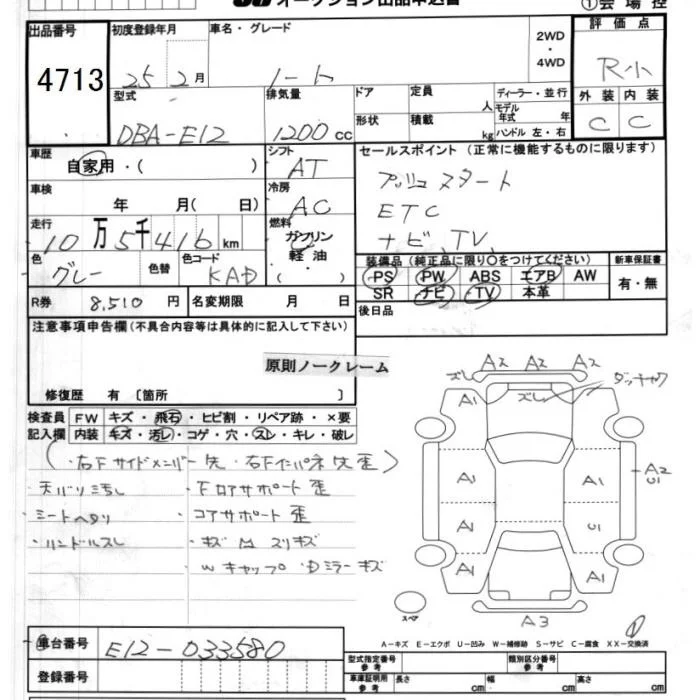 オークション出品申込書
①会場控
出品番号
4713
初度登録年月
25 2月
車名・グレード
ノート
2WD
・
4WD
評価点
R小
外装 内装
C C
型式
DBA-E12
排気量
1200cc
ドア
定員 人
ディーラー・並行
モデル年式 年
形状
積載 kg
ハンドル 左・右
車歴
自家用・( )
シフト
AT
セールスポイント (正常に機能するものに限ります)
プッシュスタート
ETC
ナビ、TV、
車検
年 月( 日)
冷房
AC
走行
10万5千416km
燃料
ガソリン
軽油
( )
色
グレー
色替
色コード
KAD
装備品(純正品に限り○をつけてください)
新車保証書
PS PW ABS エアB AW
SR ナビ TV 本革
有・無
R券 8,510円
名変期限 月 日
後日品
注意事項申告欄(不具合内容等は具体的に記入して下さい)
原則ノークレーム
修復歴 有〔箇所 〕
検査員記入欄
FW キズ・飛石・ヒビ割・リペア跡・×要
内装 キズ・汚レ・コゲ・穴・スレ・キレ・破レ
(・右Fサイドメンバー先・右Fインパネ先歪)
・天バリ汚レ ・Fロアサポート歪
・シートヘタリ ・コアサポート歪
・ハンドルスレ ・キズ凹スリキズ
・Wキャップ・Dミラーキズ
A2 A2 A2
ズレ
ズレ
ダッシキズ
A1 A1
A1 A1
A2
U1
A1 U1
A1 A1
A3
スペア
A-キズ E-エクボ U-凹み W-補修跡 S-サビ C-腐食 XX-交換済
車台番号
E12-033580
登録番号
型式指定番号 参考
類別区分番号 参考
車庫証明用 参考
長さ cm
幅 cm
高さ cm